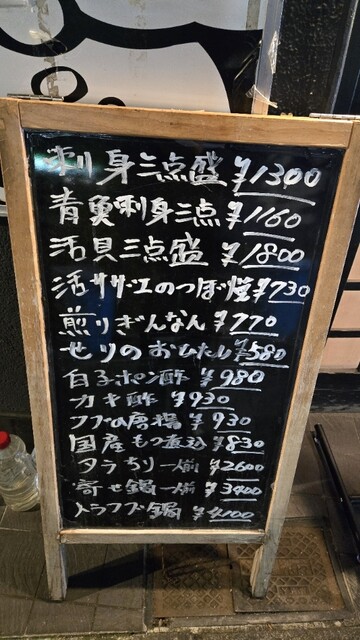 刺身三点盛 ¥1300
青魚刺身三点 ¥1160
活貝三点盛 ¥1800
活サザエのつぼ焼 ¥730
煎りぎんなん ¥770
せりのおひたし ¥580
白子ポン酢 ¥980
カキ酢 ¥930
フグの唐揚 ¥930
国産もつ煮込 ¥830
タラちり一人前 ¥2600
寄せ鍋一人前 ¥3400
トラフグ鍋 ¥4100